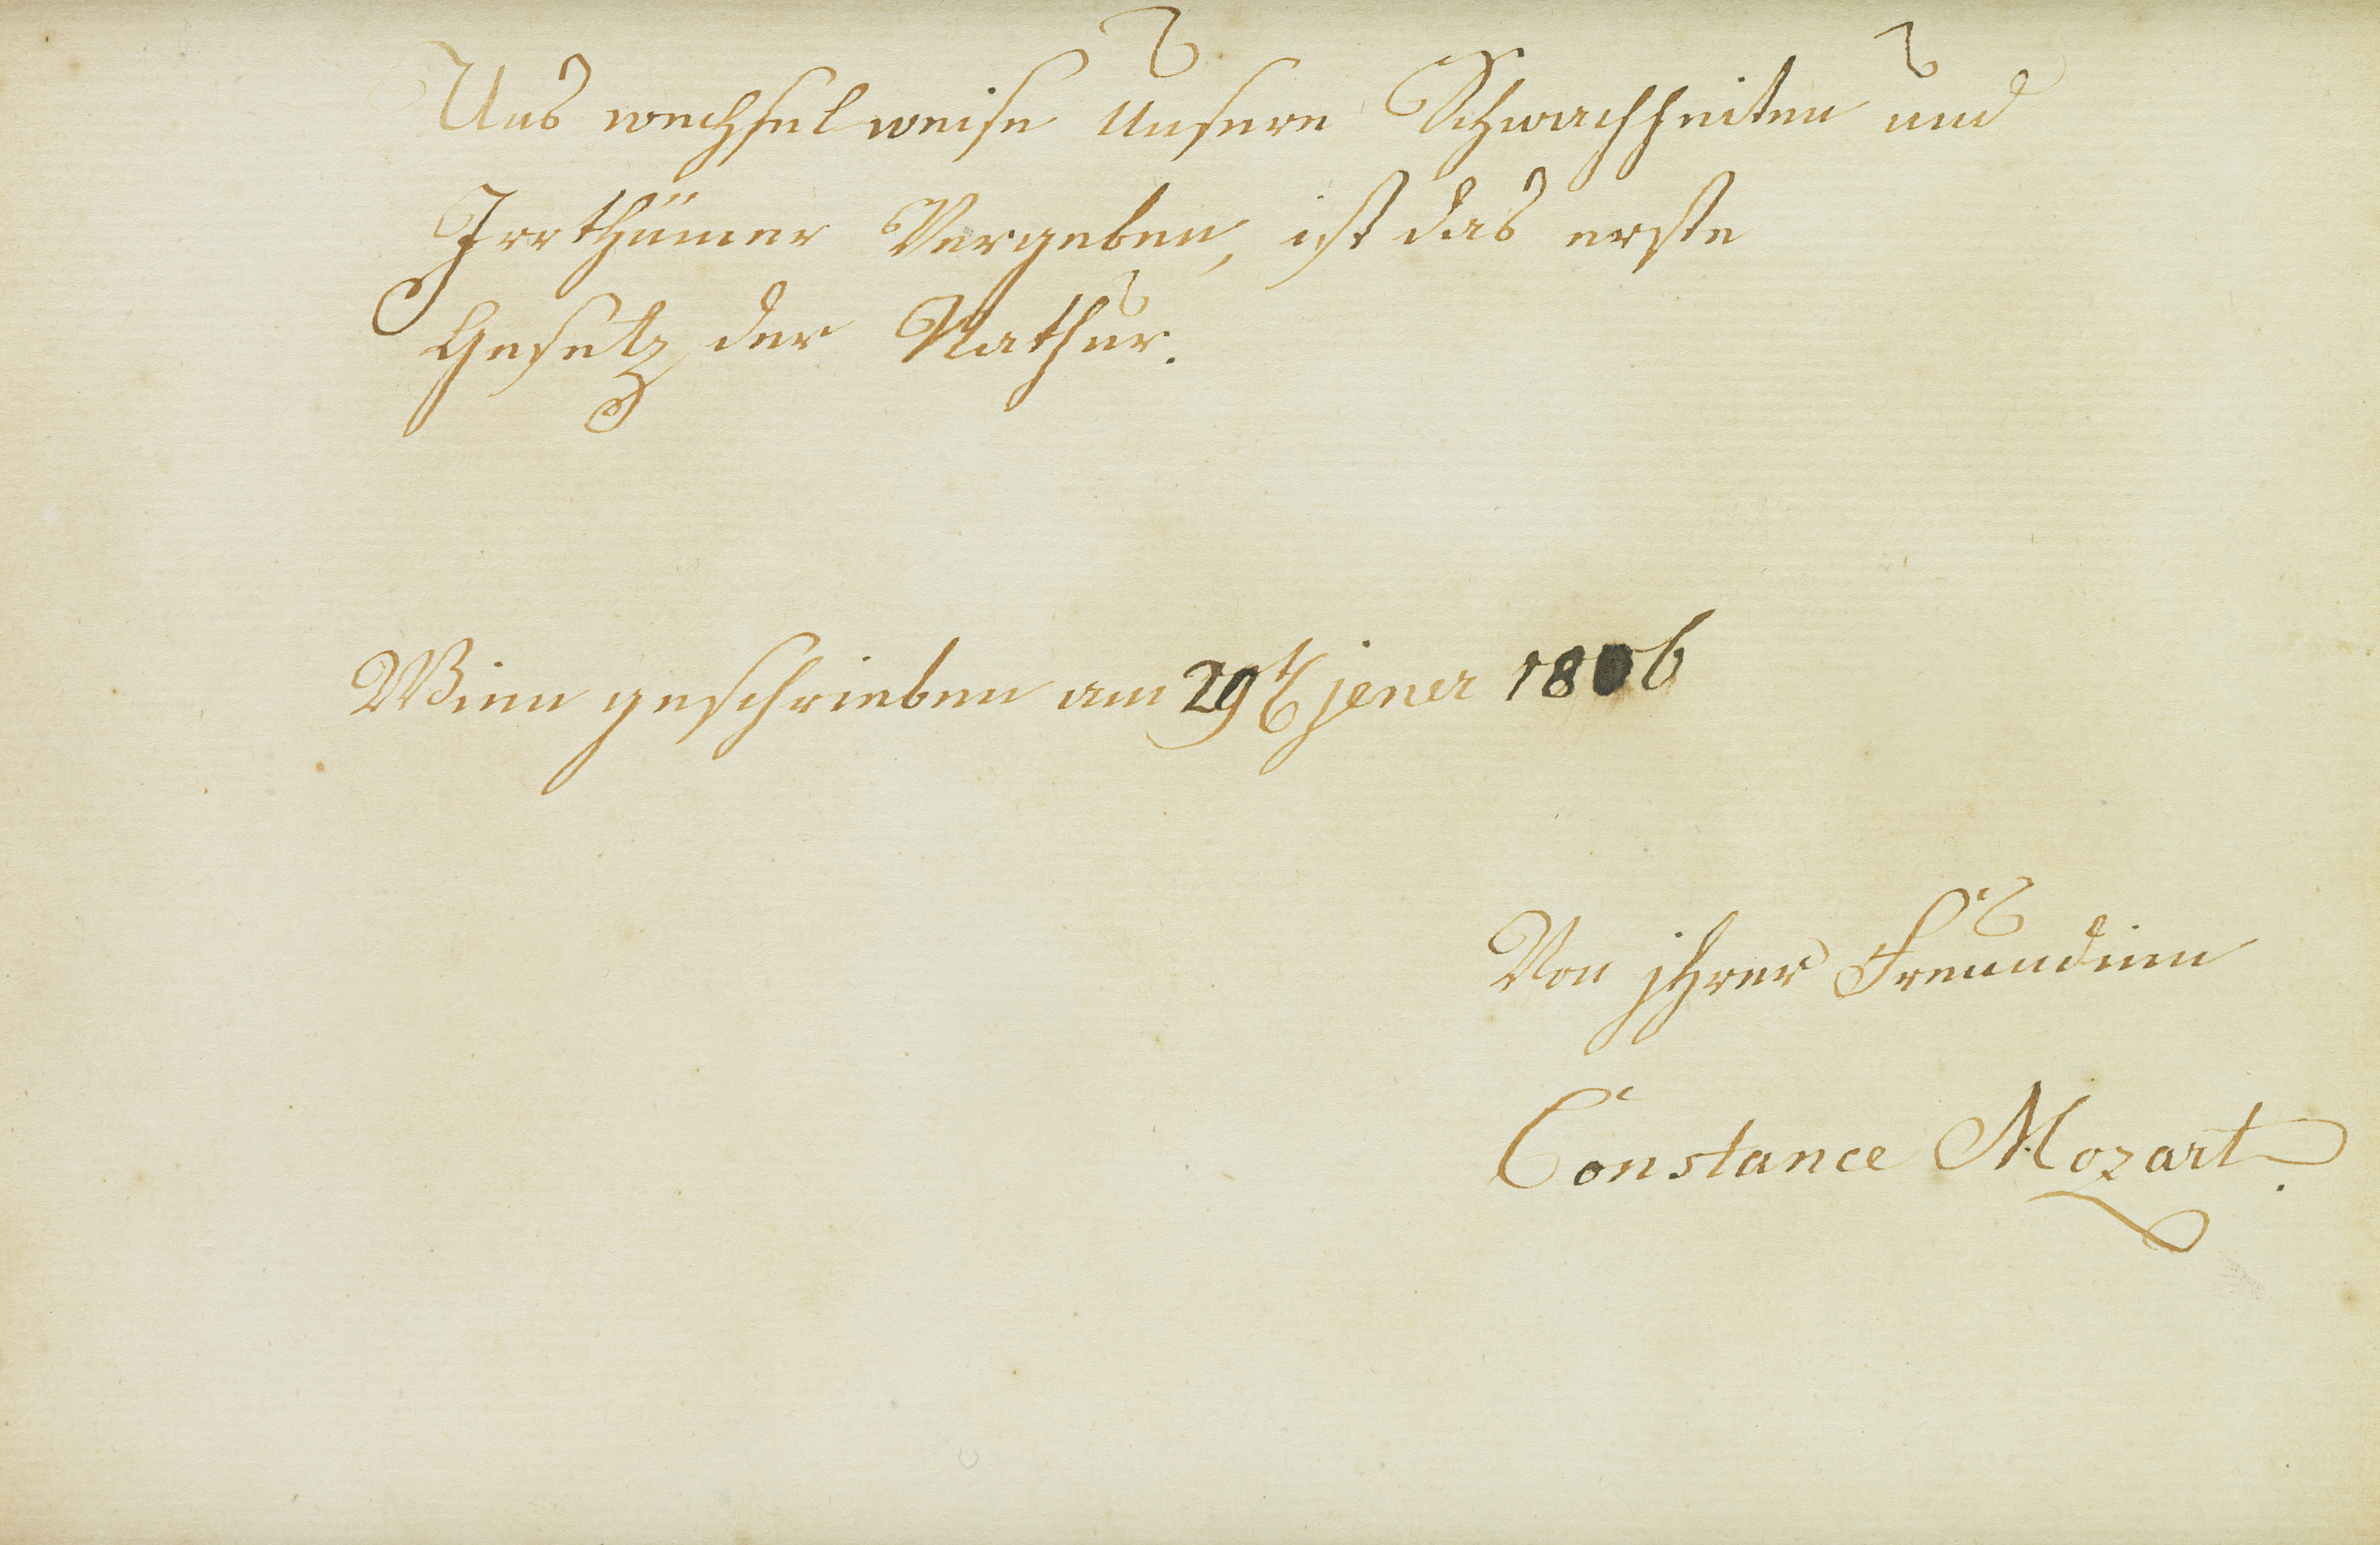 Uns wechselweise unsere Schwachheiten und
Irrthümer Vergeben, ist das erste
Gesetz der Nathur.
Wienn geschrieben am 29t jener 1806
Von ihrer Freundinn
Constance Mozart.